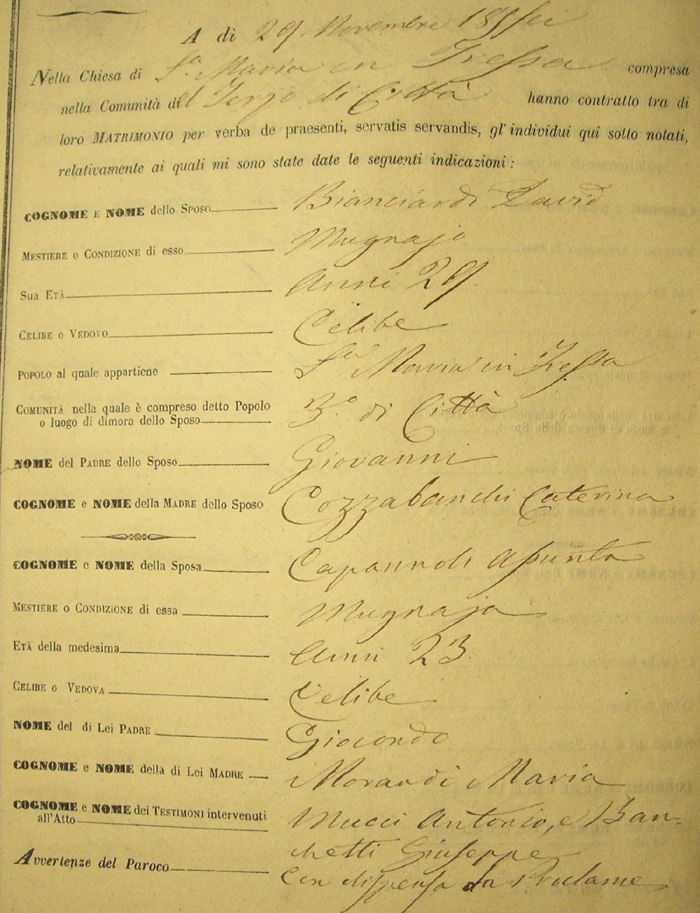 A di 29. Novembre 185sei
Nella Chiesa di Sta. Maria in Tressa compresa
nella Comunità del Terzo di Città hanno contratto tra di
loro MATRIMONIO per verba de praesenti, servatis servandis, gl'individui qui sotto notati,
relativamente ai quali mi sono state date le seguenti indicazioni:
COGNOME E NOME dello Sposo Bianciardi David
MESTIERE O CONDIZIONE di esso Mugnajo
Sua ETÀ Anni 29.
CELIBE O VEDOVO Celibe
POPOLO al quale appartiene Sta Maria in Tressa
COMUNITÀ nella quale è compreso detto Popolo
o luogo di dimora dello Sposo 3.o di Città
NOME del PADRE dello Sposo Giovanni
COGNOME e NOME della MADRE dello Sposo Cozzabanchi Caterina
COGNOME e NOME della Sposa Capannoli Assunta
MESTIERE O CONDIZIONE di essa Mugnaja
ETÀ della medesima Anni 23
CELIBE O VEDOVA Celibe
NOME del di Lei PADRE Giocondo
COGNOME e NOME della di Lei MADRE Morandi Maria
COGNOME e NOME dei TESTIMONI intervenuti
all'Atto Mucci Antonio, e Ban-
chetti Giuseppe
Avvertenze del Paroco Con dispensa da Proclame